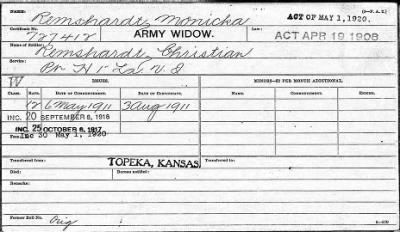 (3—P. A. 2)
Name of Pensioner:
Remshardt, Monicka
ACT OF MAY 1, 1920.
Certificate No.: Class: Law:
727412 ARMY WIDOW. ACT APR 19 1908
Name of Soldier:
Remshardt, Christian
Service:
Pvt. H 1 La. V. I
IV ISSUES. MINORS—$2 PER MONTH ADDITIONAL.
CLASS. RATE. DATE OF COMMENCEMENT. DATE OF ISSUE. DATE OF COMMENCEMENT. DATE OF ISSUE.
12 6 May 1911 3 Aug 1911
INC. 20 SEPTEMBER 8, 1916
INC. 25 OCTOBER 6, 1917
Inc 30 May 1, 1920
Fees:
Transferred from: TOPEKA, KANSAS Transferred to:
Died: Bureau notified:
Remarks:
Former Roll No. Orig